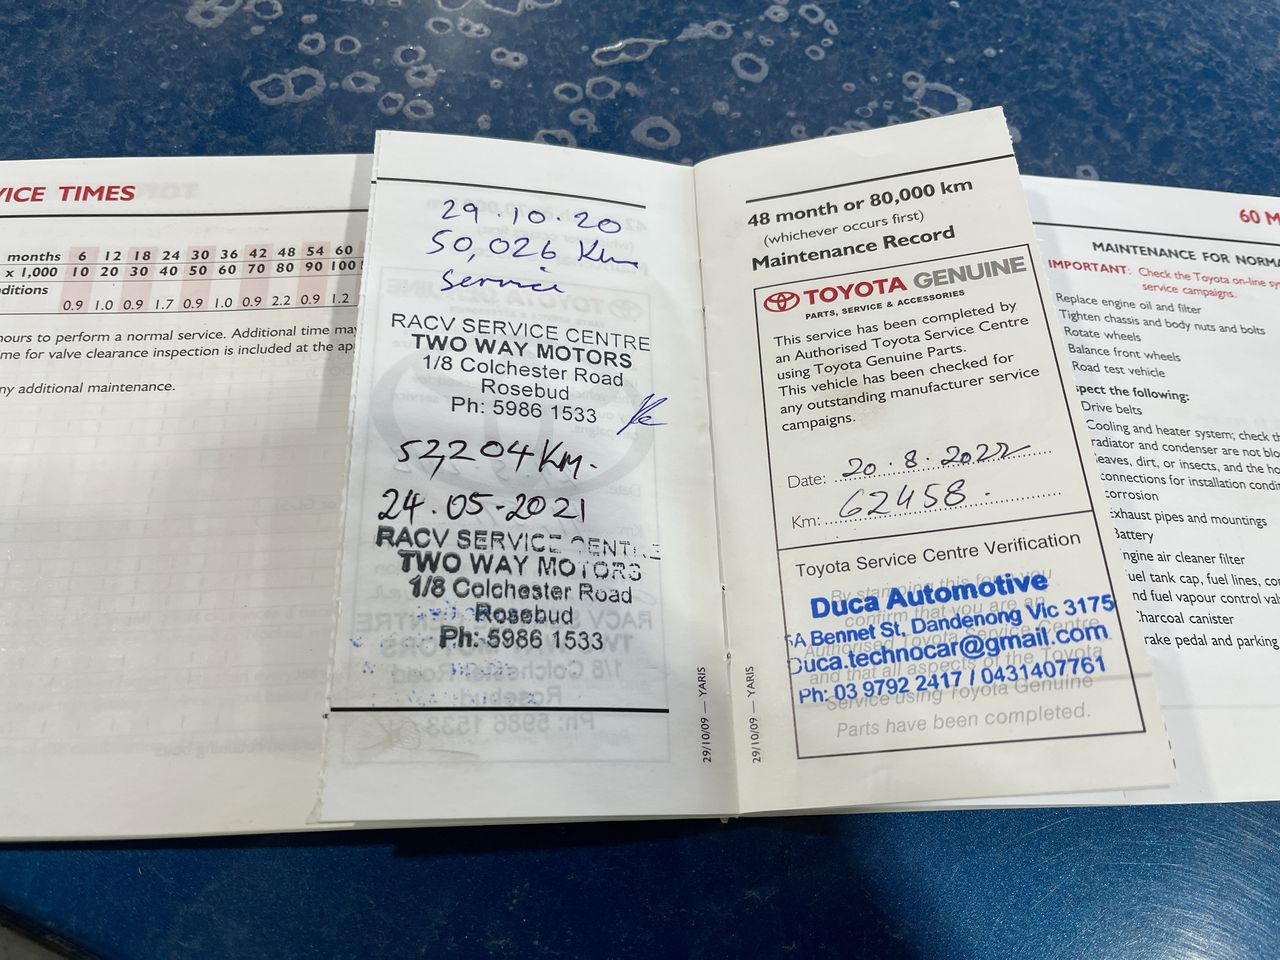 VICE TIMES
months 6 12 18 24 30 36 42 48 54 60
x 1,000 10 20 30 40 50 60 70 80 90 100
ditions
0.9 1.0 0.9 1.7 0.9 1.0 0.9 2.2 0.9 1.2
ours to perform a normal service. Additional time may
me for valve clearance inspection is included at the ap
ny additional maintenance.
29.10.20
50,026 Km
Service
RACV SERVICE CENTRE
TWO WAY MOTORS
1/8 Colchester Road
Rosebud
Ph: 5986 1533
52,204 Km.
24.05-2021
RACV SERVICE CENTRE
TWO WAY MOTORS
1/8 Colchester Road
Rosebud
Ph: 5986 1533
29/10/09 — YARIS
29/10/09 — YARIS
48 month or 80,000 km
(whichever occurs first)
Maintenance Record
TOYOTA GENUINE
PARTS, SERVICE & ACCESSORIES
This service has been completed by
an Authorised Toyota Service Centre
using Toyota Genuine Parts.
This vehicle has been checked for
any outstanding manufacturer service
campaigns.
Date: 20.8.2022
Km: 62458.
Toyota Service Centre Verification
By stamping this form you
confirm that you are an
Authorised Toyota Service Centre
and that all aspects of the Toyota
Service using Toyota Genuine
Parts have been completed.
Duca Automotive
5A Bennet St, Dandenong Vic 3175
Duca.technocar@gmail.com
Ph: 03 9792 2417 / 0431407761
60 M
MAINTENANCE FOR NORMA
IMPORTANT: Check the Toyota on-line sy
service campaigns.
Replace engine oil and filter
Tighten chassis and body nuts and bolts
Rotate wheels
Balance front wheels
Road test vehicle
spect the following:
Drive belts
Cooling and heater system; check th
radiator and condenser are not blo
leaves, dirt, or insects, and the ho
connections for installation condit
corrosion
Exhaust pipes and mountings
Battery
Engine air cleaner filter
uel tank cap, fuel lines, con
nd fuel vapour control val
harcoal canister
rake pedal and parking